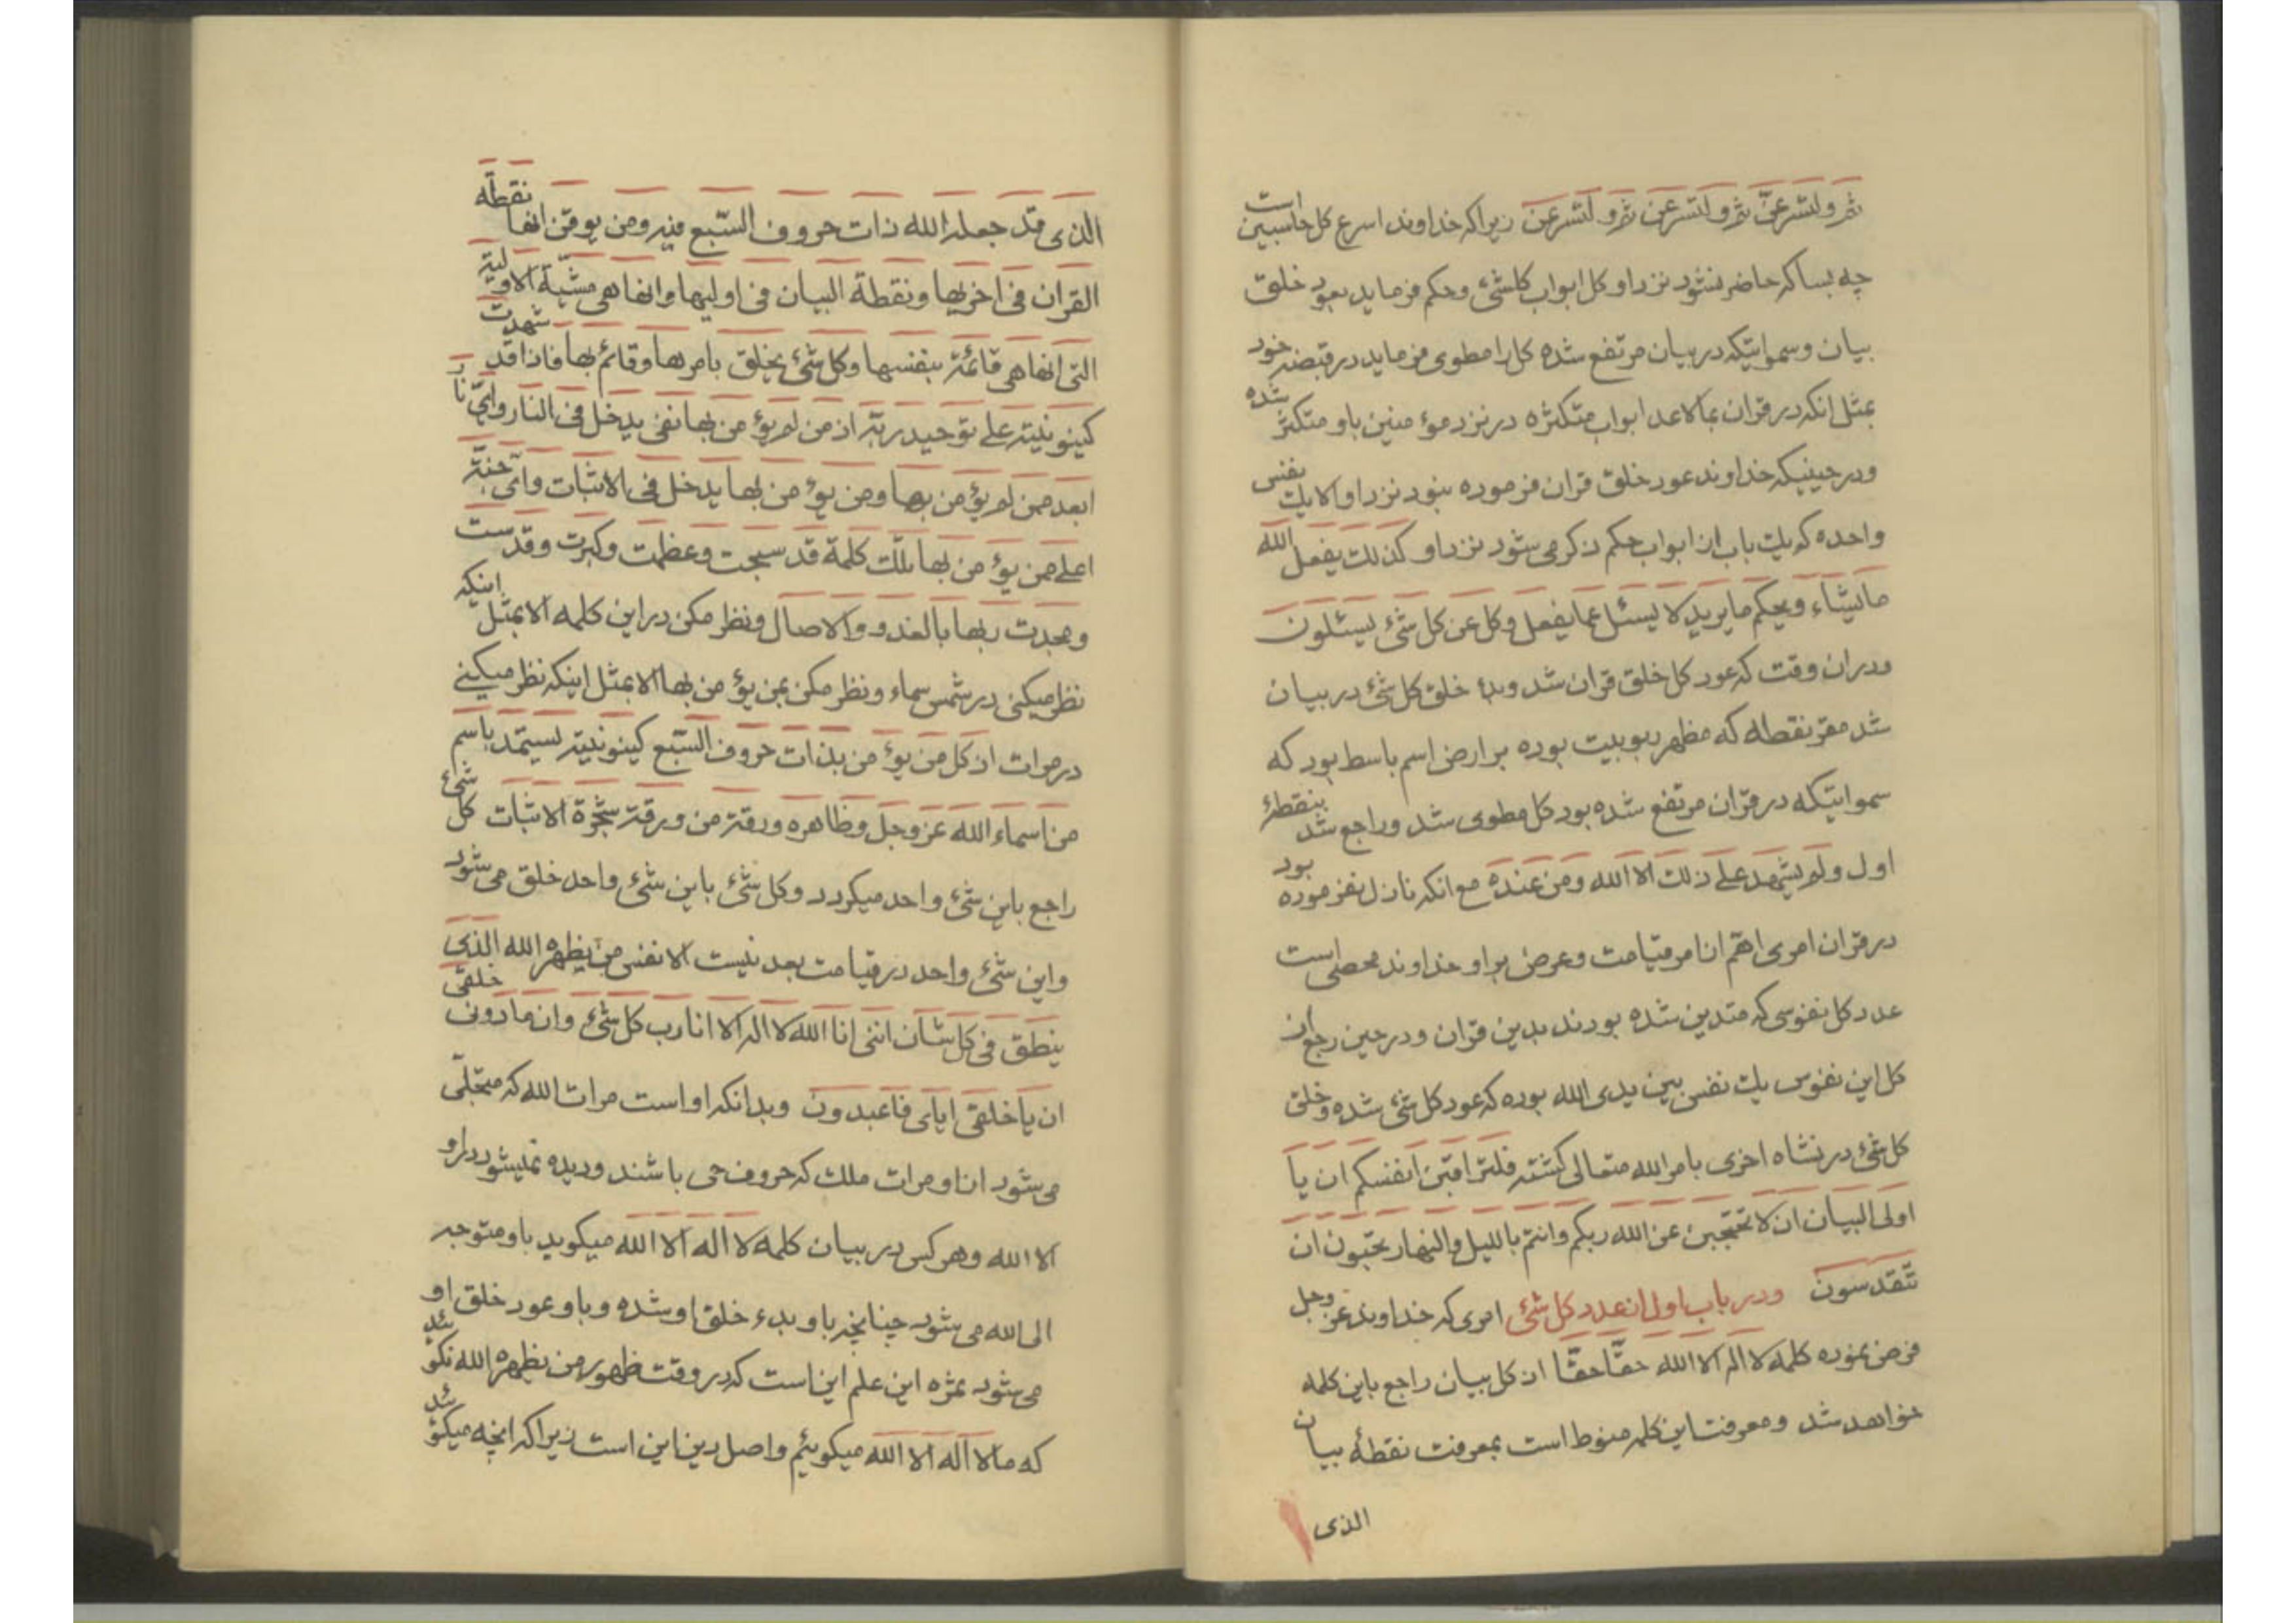 ثم و لتسرعن ثم و لتسرعن ثم و لتسرعن زیرا که خداوند اسرع کل حاسبین است
چه بسا که حاضر نشود نزد او کل ابواب کلشئ و حکم فرماید بعود خلق
بیان و سمواتیکه در بیان مرتفع شده کل را مطوی فرماید در قبضه خود
بمثل انکه در قران بمالاعد ابواب متکثره در نزد مؤمنین باو متکثر شده
و در حینیکه خداوند عود خلق قران فرموده نبود نزد او الا یک نفس
واحده که یک باب از ابواب حکم ذکر می شود نزد او کذلک یفعل الله
مایشاء و یحکم ما یرید لا یسئل عما یفعل و کل عن کل شئ یسئلون
و در ان وقت که عود کل خلق قران شد و بدء خلق کل شئ در بیان
شد مقر نقطه که مظهر ربوبیت بوده بر ارض اسم باسط بود که
سمواتیکه در قران مرتفع شده بود کل مطوی شد و راجع شد بنقطهٔ
اول و لم یشهد علی ذلک الا الله و من عنده مع انکه نازل نفرموده بود
در قران امری اهم از امر قیامت و عرض بر او خداوند محصی است
عدد کل نفوسی که متدین شده بودند بدین قران و در حین رجع ان
کل این نفوس یک نفس بین یدی الله بوده که عود کل شئ شده و خلق
کل شئ در نشاه اخری بامر الله متعالی گشته فلتراقبن انفسکم ان یا
اولی البیان ان لا تحتجبن عن الله ربکم و انتم باللیل و النهار تحبون ان
تتقدسون و در باب اول از عدد کل شئ امری که خداوند عز وجل
فرض نموده کلمه لا اله الا الله حقا حقا از کل بیان راجع باین کلمه
خواهد شد و معرفت این کلمه منوط است بمعرفت نقطهٔ بیان
الذی
الذی قد جعله الله ذات حروف السبع فیه و من یوقن انها نقطة
القران فی اخریها و نقطة البیان فی اولیها و انها هی مشیة الاولیة
التی انها هی قائمة بنفسها و کل شئ یخلق بامرها و قائم بها فاذا قد شهدت
کینونیته علی توحید ربه اذ من لم یؤمن بها نفی یدخل فی النار وای نار
ابعد ممن لم یؤمن بها و من یؤمن بها یدخل فی الاثبات وای جنة
اعلی ممن یؤمن بها تلک کلمة قد سبحت و عظمت و کبرت و قدست
و مجدت ربها بالغدو و الاصال و نظر مکن در این کلمه الا بمثل اینکه
نظر میکنی در شمس سماء و نظر مکن بمن یؤمن بها الا بمثل اینکه نظر میکنی
در مرات اذ کل من یؤمن بذات حروف السبع کینونیته یستمد باسم
من اسماء الله عز وجل و ظاهره ورقة من ورقة شجرة الاثبات کل شئ
راجع باین شئ واحد میگردد و کل شئ باین شئ واحد خلق می شود
و این شئ واحد در قیامت بعد نیست الا نفس من یظهره الله الذی
ینطق فی کل شان اننی انا الله لا اله الا انا رب کل شئ و ان ما دونی خلقی
ان یا خلقی ایای فاعبدون و بدانکه او است مرات الله که متجلی
می شود از او مرات ملک که حروف حی باشند و دیده نمیشود در او
الا الله و هر کس در بیان کلمه لا اله الا الله میگوید باو متوجه
الی الله می شود چنانچه باو بدء خلق او شده و باو عود خلق او
می شود ثمره این علم این است که در وقت ظهور من یظهره الله نگوئید
که ما لا اله الا الله میگوئیم و اصل دین این است زیرا که انچه میگوئید